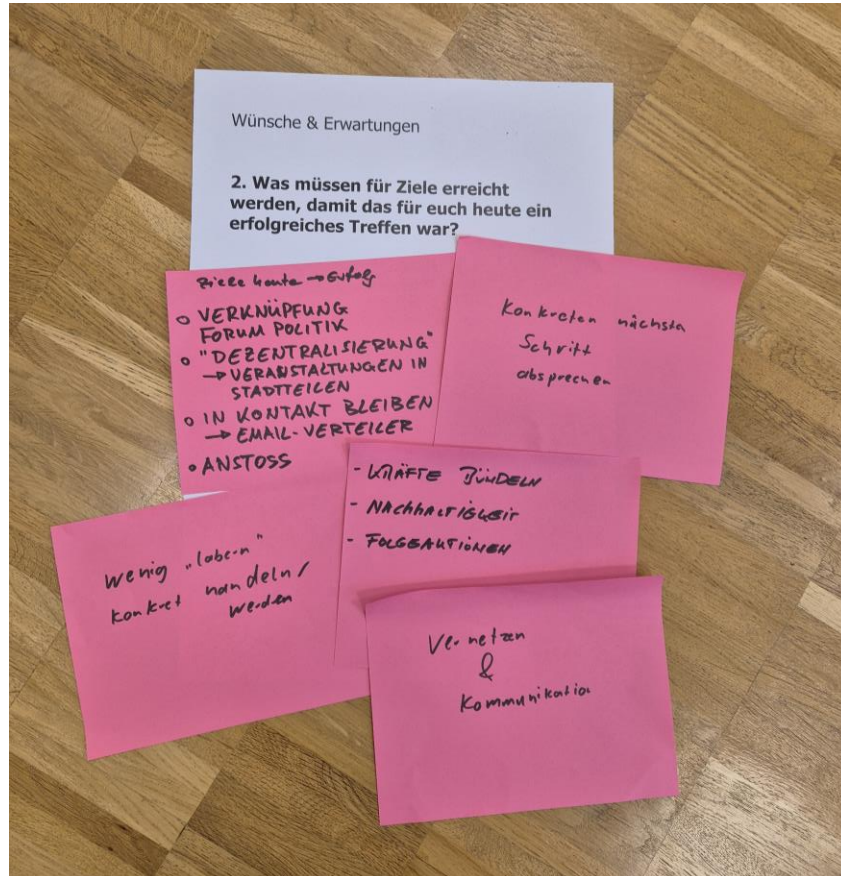 Wünsche & Erwartungen
2. Was müssen für Ziele erreicht
werden, damit das für euch heute ein
erfolgreiches Treffen war?
Ziele heute → Erfolg
o VERKNÜPFUNG
FORUM POLITIK
o "DEZENTRALISIERUNG"
→ VERANSTALTUNGEN IN
STADTTEILEN
o IN KONTAKT BLEIBEN
→ EMAIL-VERTEILER
• ANSTOSS
Konkreten nächsten
Schritt
absprechen
- KRÄFTE BÜNDELN
- NACHHALTIGKEIT
- FOLGEAKTIONEN
wenig „labern"
konkret handeln/
werden
Vernetzen
&
Kommunikation